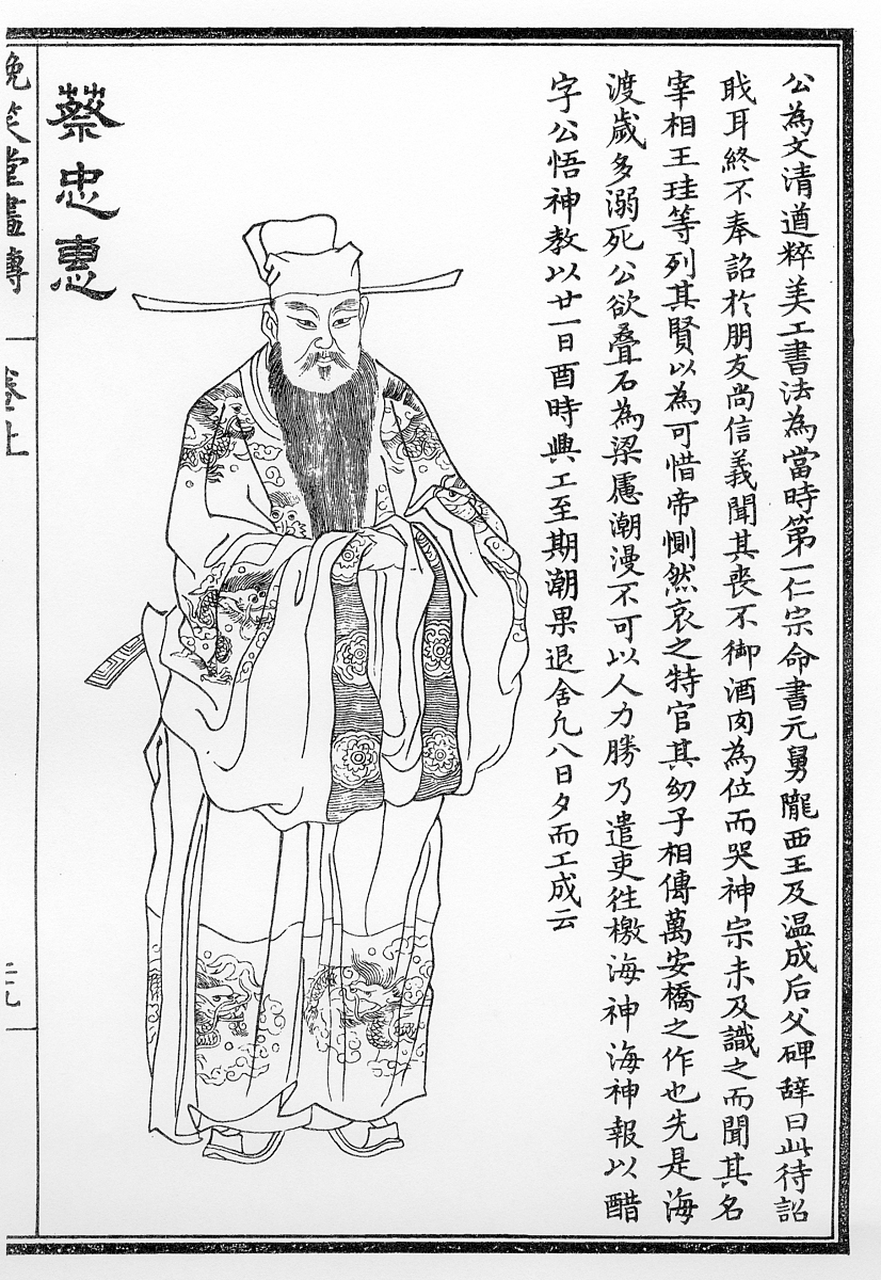 公為文清遒粹美工書法為當時第一仁宗命書元舅隴西王及温成后父碑辞曰此待詔
戝耳終不奉詔於朋友尚信義聞其喪不御酒肉為位而哭神宗未及識之而聞其名
宰相王珪等列其賢以為可惜帝惻然哀之特官其幼子相傳萬安橋之作也先是海
渡歲多溺死公欲叠石為梁慮潮漫不可以人力勝乃遣吏徃檄海神海神報以醋
字公悟神教以廿一日酉時興工至期潮果退舍凢八日夕而工成云
蔡忠惠
晚笑堂畫傳
卷上